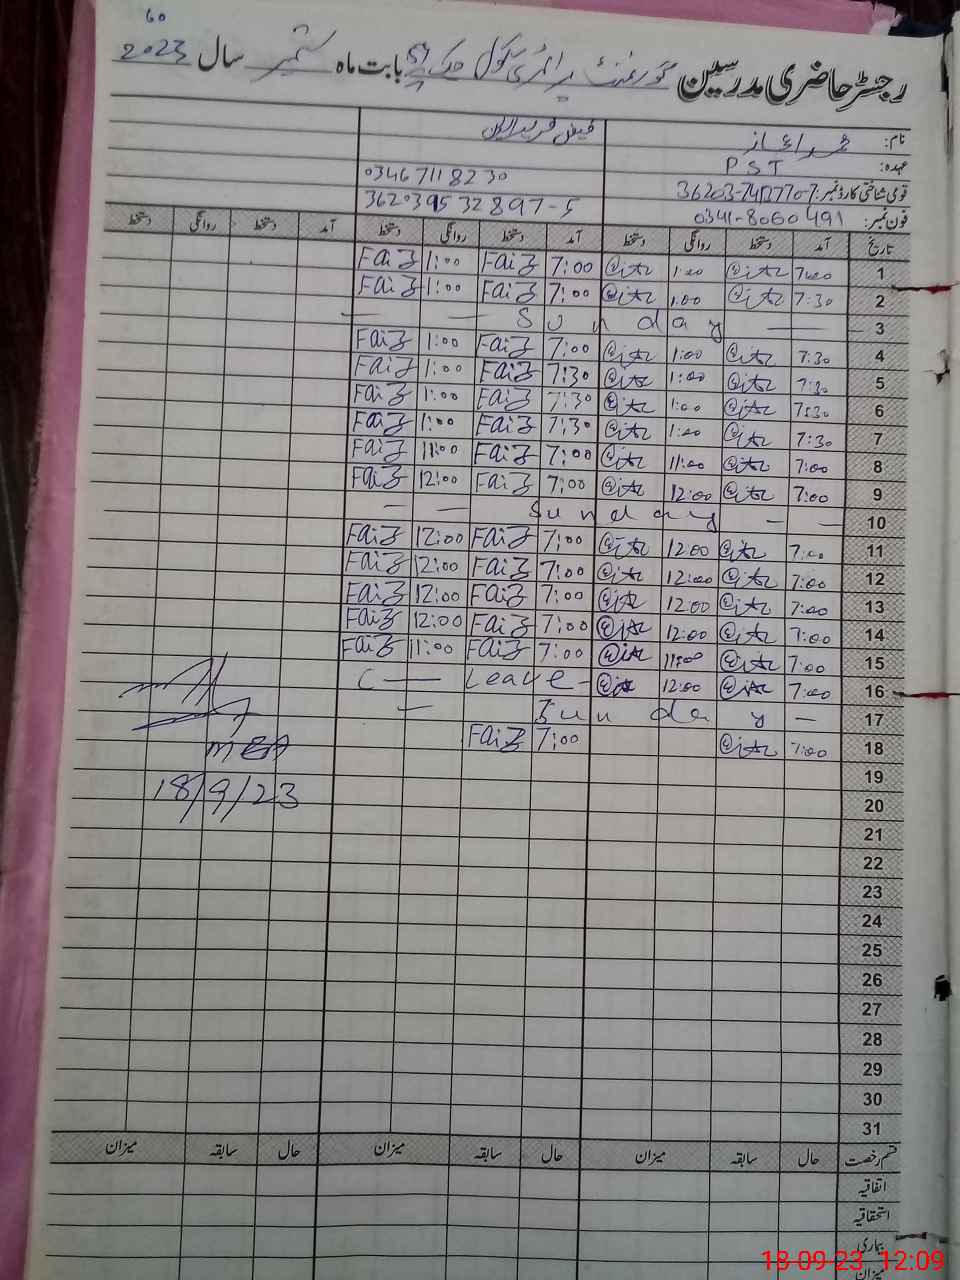 60
رجسٹر حاضری مدرسین گورنمنٹ پرائمری سکول بابت ماہ ستمبر سال 2023
نام: محمد اعجاز فیض فرید الدین
عہدہ: PST
قومی شناختی کارڈ نمبر: 03467118230
فون نمبر: 0341-8060491 362039532897-5
تاریخ آمد دستخط روانگی دستخط آمد دستخط روانگی دستخط آمد دستخط روانگی دستخط
1 1:00 7:00 Faiz 1:00 Faiz
2 7:30 1:00 7:00 Faiz 1:00 Faiz
3 — Sunday — —
4 7:30 1:00 7:00 Faiz 1:00 Faiz
5 7:30 1:00 7:30 Faiz 1:00 Faiz
6 7:30 1:00 7:30 Faiz 1:00 Faiz
7 7:30 1:00 7:30 Faiz 1:00 Faiz
8 7:00 11:00 7:00 Faiz 11:00 Faiz
9 7:00 12:00 7:00 Faiz 12:00 Faiz
10 — — Sunday — —
11 7:00 12:00 7:00 Faiz 12:00 Faiz
12 7:00 12:00 7:00 Faiz 12:00 Faiz
13 7:00 12:00 7:00 Faiz 12:00 Faiz
14 7:00 12:00 7:00 Faiz 12:00 Faiz
15 7:00 11:00 7:00 Faiz 11:00 Faiz
16 7:00 12:00 Leave
17 — Sunday —
18 7:00 7:00 Faiz
MEA
18/9/23
19
20
21
22
23
24
25
26
27
28
29
30
31
قسم رخصت حال سابقہ میزان حال سابقہ میزان حال سابقہ میزان
اتفاقیہ
استحقاقیہ
بیماری
میزان
18-09-23 12:09